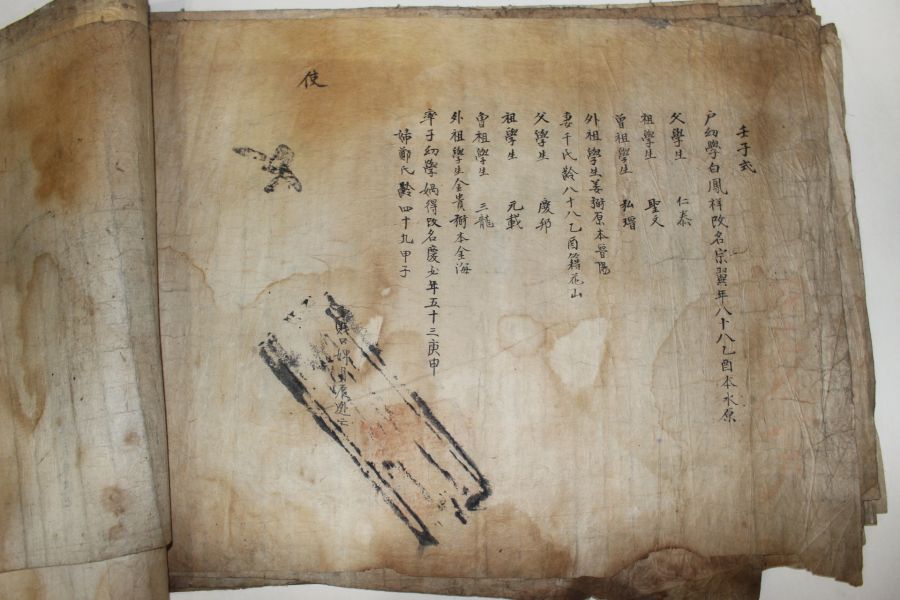 壬子式
戶幼學白鳳祥改名宗翼年八十八乙酉本水原
父學生 仁泰
祖學生 聖文
曾祖學生 弘瑨
外祖學生姜
原本晉陽
妻千氏齡八十八乙酉籍花山
父學生 慶邦
祖學生 元載
曾祖學生 三龍
外祖學生金貴
本金海
率子幼學
得改名慶
年五十三庚申
婦鄭氏齡四十九甲子
婢
逃亡
使